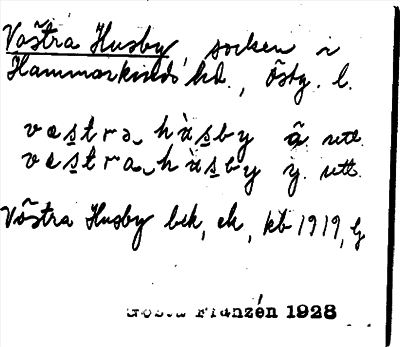 Västra Husby, socken i
Hammarkinds hd., Östg. l.
væstra hùsby ä. utt.
væstra hùsby y. utt.
Västra Husby bek, ek, kb 1919, lj
Gösta Franzén 1928